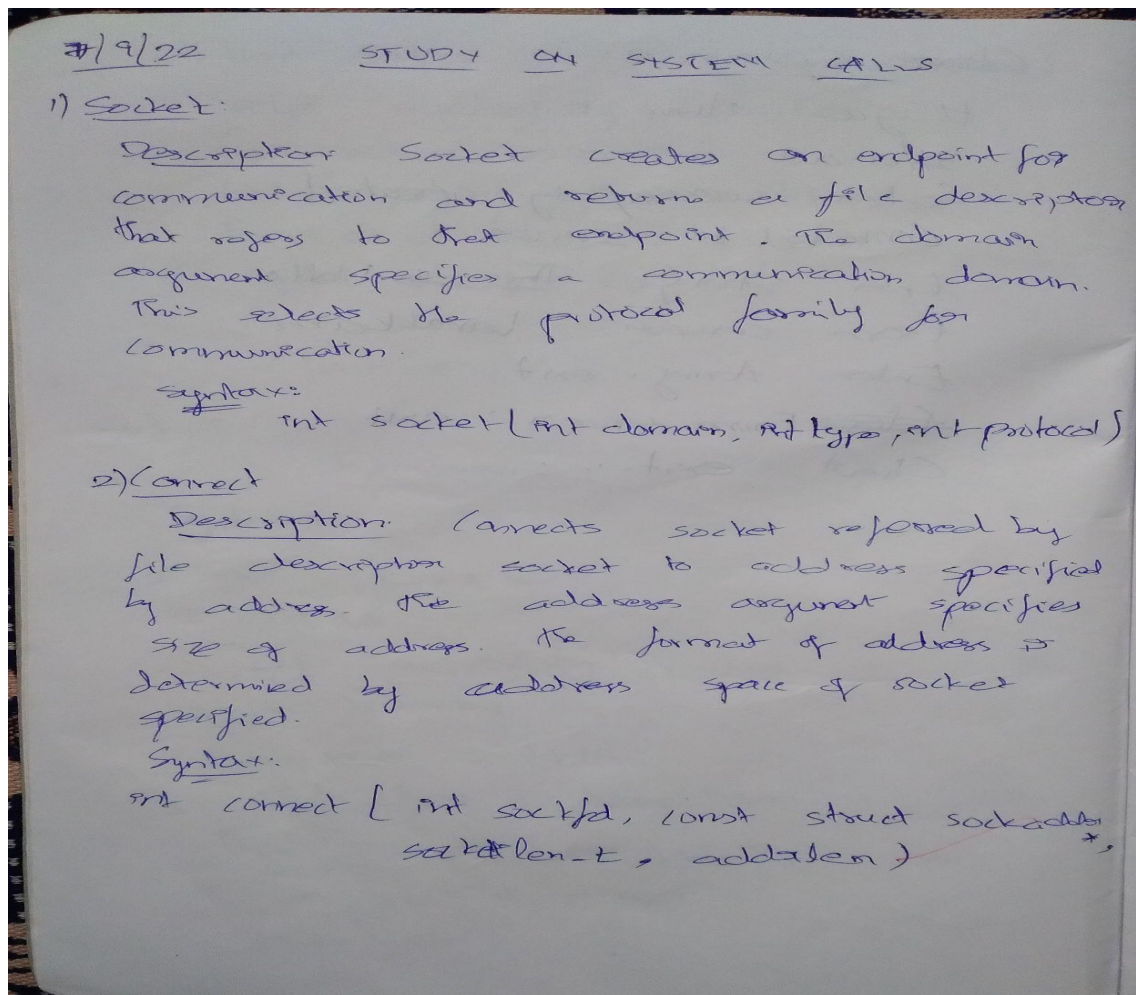 7/9/22 STUDY ON SYSTEM CALLS
1) Socket:
Description: Socket creates an endpoint for
communication and returns a file descriptor
that refers to that endpoint. The domain
argument specifies a communication domain.
This selects the protocol family for
communication.
Syntax:
int socket (int domain, int type, int protocol)
2) Connect
Description: Connects socket referred by
file descriptor socket to address specified
by address. the address argument specifies
size of address. The format of address is
determined by address space of socket
specified.
Syntax:
int connect ( int sockfd, const struct sockaddr *,
socklen_t, addrlen)